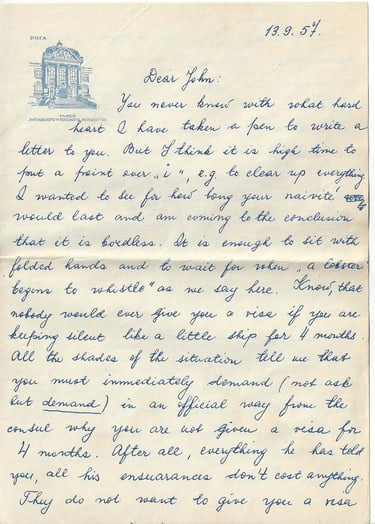 13.9.57.
РИГА
МУЗЕЙ
ЛАТЫШСКОГО И РУССКОГО ИСКУССТВА
Dear John:
You never knew with what hard
heart I have taken a pen to write a
letter to you. But I think it is high time to
put a point over „i“, e.g. to clear up everything
I wanted to see for how long your naivité
would last and am coming to the conclusion
that it is bordless. It is enough to sit with
folded hands and to wait for when „a lobster
begins to whistle“ as we say here. Know, that
nobody would ever give you a visa if you are
keeping silent like a little ship for 4 months.
All the shades of the situation tell me that
you must immediately demand (not ask
but demand) in an official way from the
consul why you are not given a visa for
4 months. After all, everything he has told
you, all his ensuarances don't cost anything.
They do not want to give you a visa